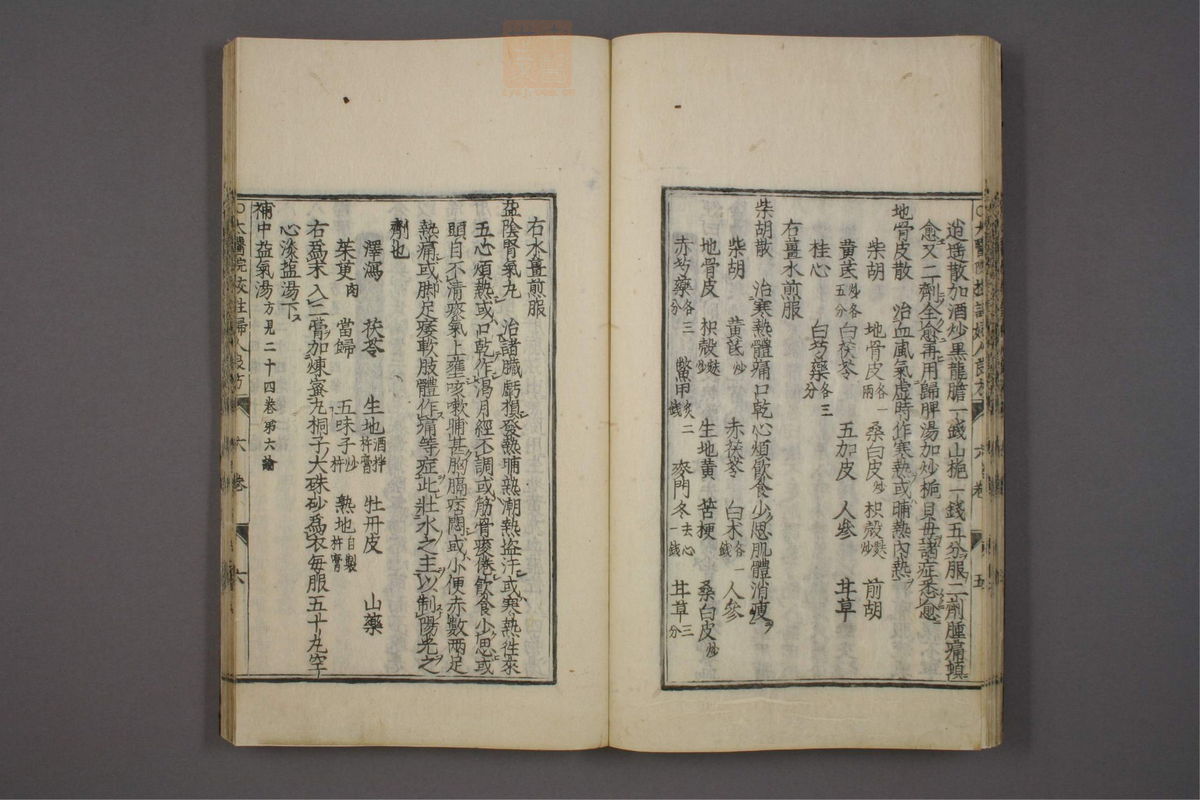 逍遥散加酒炒黒龍膽一錢山梔一錢五分服二劑腫痛頓
愈又二劑全愈再用歸脾湯加炒梔貝母諸症悉愈
地骨皮散 治血風氣虛時作寒熱或晡熱內熱
柴胡 地骨皮各一兩 桑白皮炒 枳殼麩炒 前胡
黃芪炒各五分 白茯苓 五加皮 人參 甘草
桂心 白芍藥各三分
右薑水煎服
柴胡散 治寒熱體痛口乾心煩飲食少思肌體消瘦
柴胡 黃芪炒 赤茯苓 白朮各一錢 人參
地骨皮 枳殼麩炒 生地黃 苦梗 桑白皮炒
赤芍藥各三分 鱉甲炙二錢 麥門冬去心一錢 甘草三分
右水薑煎服
益陰腎氣丸 治諸臟虧損發熱晡熱潮熱盜汗或寒熱徃來
五心煩熱或口乾作渴月經不調或筋骨痿倦飲食少思或
頭目不清痰氣上壅咳嗽晡甚胸膈痞悶或小便赤數兩足
熱痛或脚足痿軟肢體作痛等症此壯水之主以制陽光之
劑也
澤瀉 茯苓 生地酒拌杵膏 牡丹皮 山藥
茱萸肉 當歸 五味子炒杵 熟地自製杵膏
右爲末入二膏加煉蜜丸桐子大硃砂爲衣每服五十丸空
心淡塩湯下
補中益氣湯方見二十四卷第六論
○太醫院校註婦人良方 六卷 六